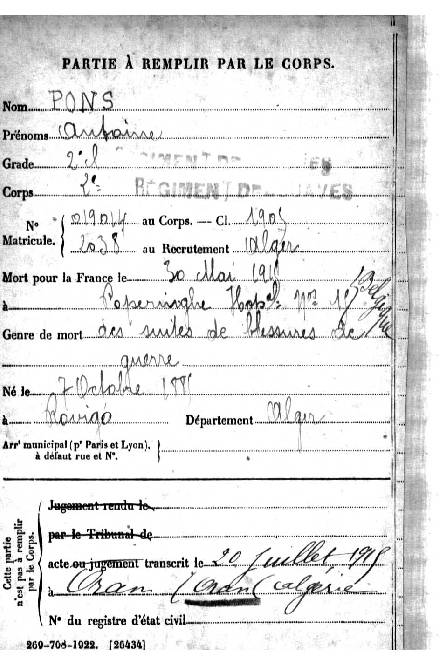 PARTIE À REMPLIR PAR LE CORPS.
Nom PONS
Prénoms Antoine
Grade 2e cl
Corps 2e RÉGIMENT DE ZOUAVES
N° Matricule. 019014 au Corps. — Cl. 1905
2038 au Recrutement Alger
Mort pour la France le 30 Mai 1915
à Poperinghe Hopal No 15 Belgique
Genre de mort des suites de blessures de
guerre
Né le 7 Octobre 1885
à Rovigo Département Alger
Arrt municipal (pr Paris et Lyon),
à défaut rue et N°.
Cette partie n'est pas à remplir par le Corps.
Jugement rendu le
par le Tribunal de
acte ou jugement transcrit le 20 Juillet 1915
à Oran (Oran) Algérie
N° du registre d'état civil
269-708-1922. [26434]